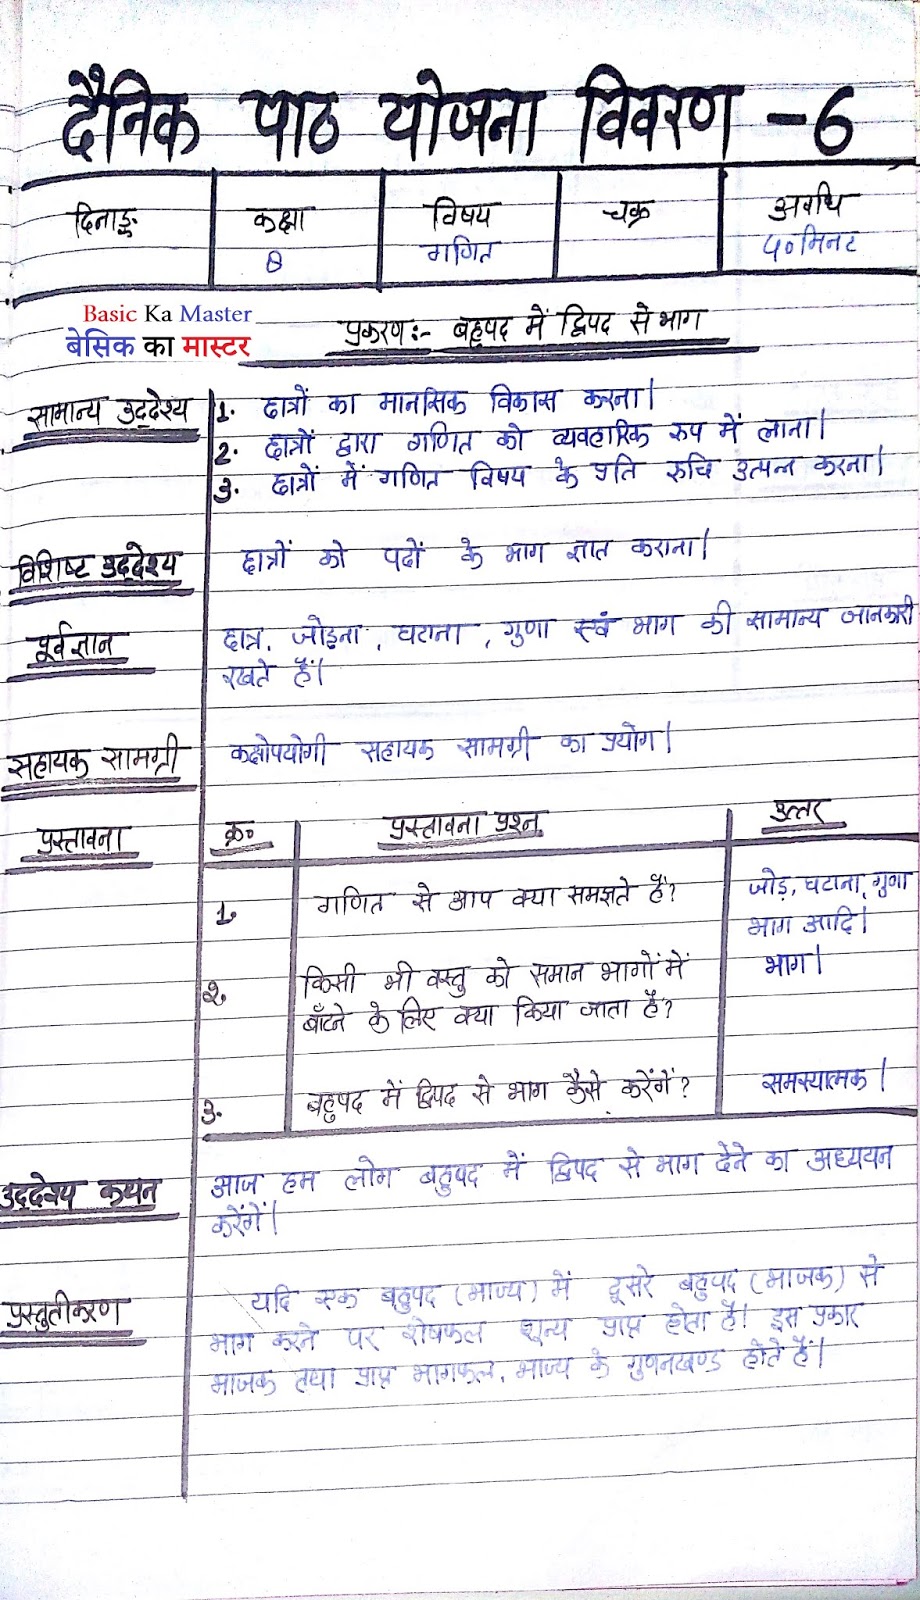 दैनिक पाठ योजना विवरण - 6
दिनाङ्क कक्षा विषय चक्र अवधि
8 गणित ५० मिनट
Basic Ka Master
बेसिक का मास्टर
प्रकरण:- बहुपद में द्विपद से भाग
सामान्य उद्देश्य 1. छात्रों का मानसिक विकास करना।
2. छात्रों द्वारा गणित को व्यवहारिक रुप में लाना।
3. छात्रों में गणित विषय के प्रति रुचि उत्पन्न करना।
विशिष्ट उद्देश्य छात्रों को पदों के भाग ज्ञात कराना।
पूर्वज्ञान छात्र, जोड़ना, घटाना, गुणा एवं भाग की सामान्य जानकारी
रखते हैं।
सहायक सामग्री कक्षोपयोगी सहायक सामग्री का प्रयोग।
प्रस्तावना क्र० प्रस्तावना प्रश्न उत्तर
1. गणित से आप क्या समझते हैं? जोड़, घटाना, गुणा
भाग आदि।
2. किसी भी वस्तु को समान भागों में भाग।
बाँटने के लिए क्या किया जाता है?
3. बहुपद में द्विपद से भाग कैसे करेंगें? समस्यात्मक।
उद्देश्य कथन आज हम लोग बहुपद में द्विपद से भाग देने का अध्ययन
करेंगें।
प्रस्तुतीकरण यदि एक बहुपद (भाज्य) में दूसरे बहुपद (भाजक) से
भाग करने पर शेषफल शून्य प्राप्त होता है। इस प्रकार
भाजक तथा प्राप्त भागफल, भाज्य के गुणनखण्ड होते हैं।